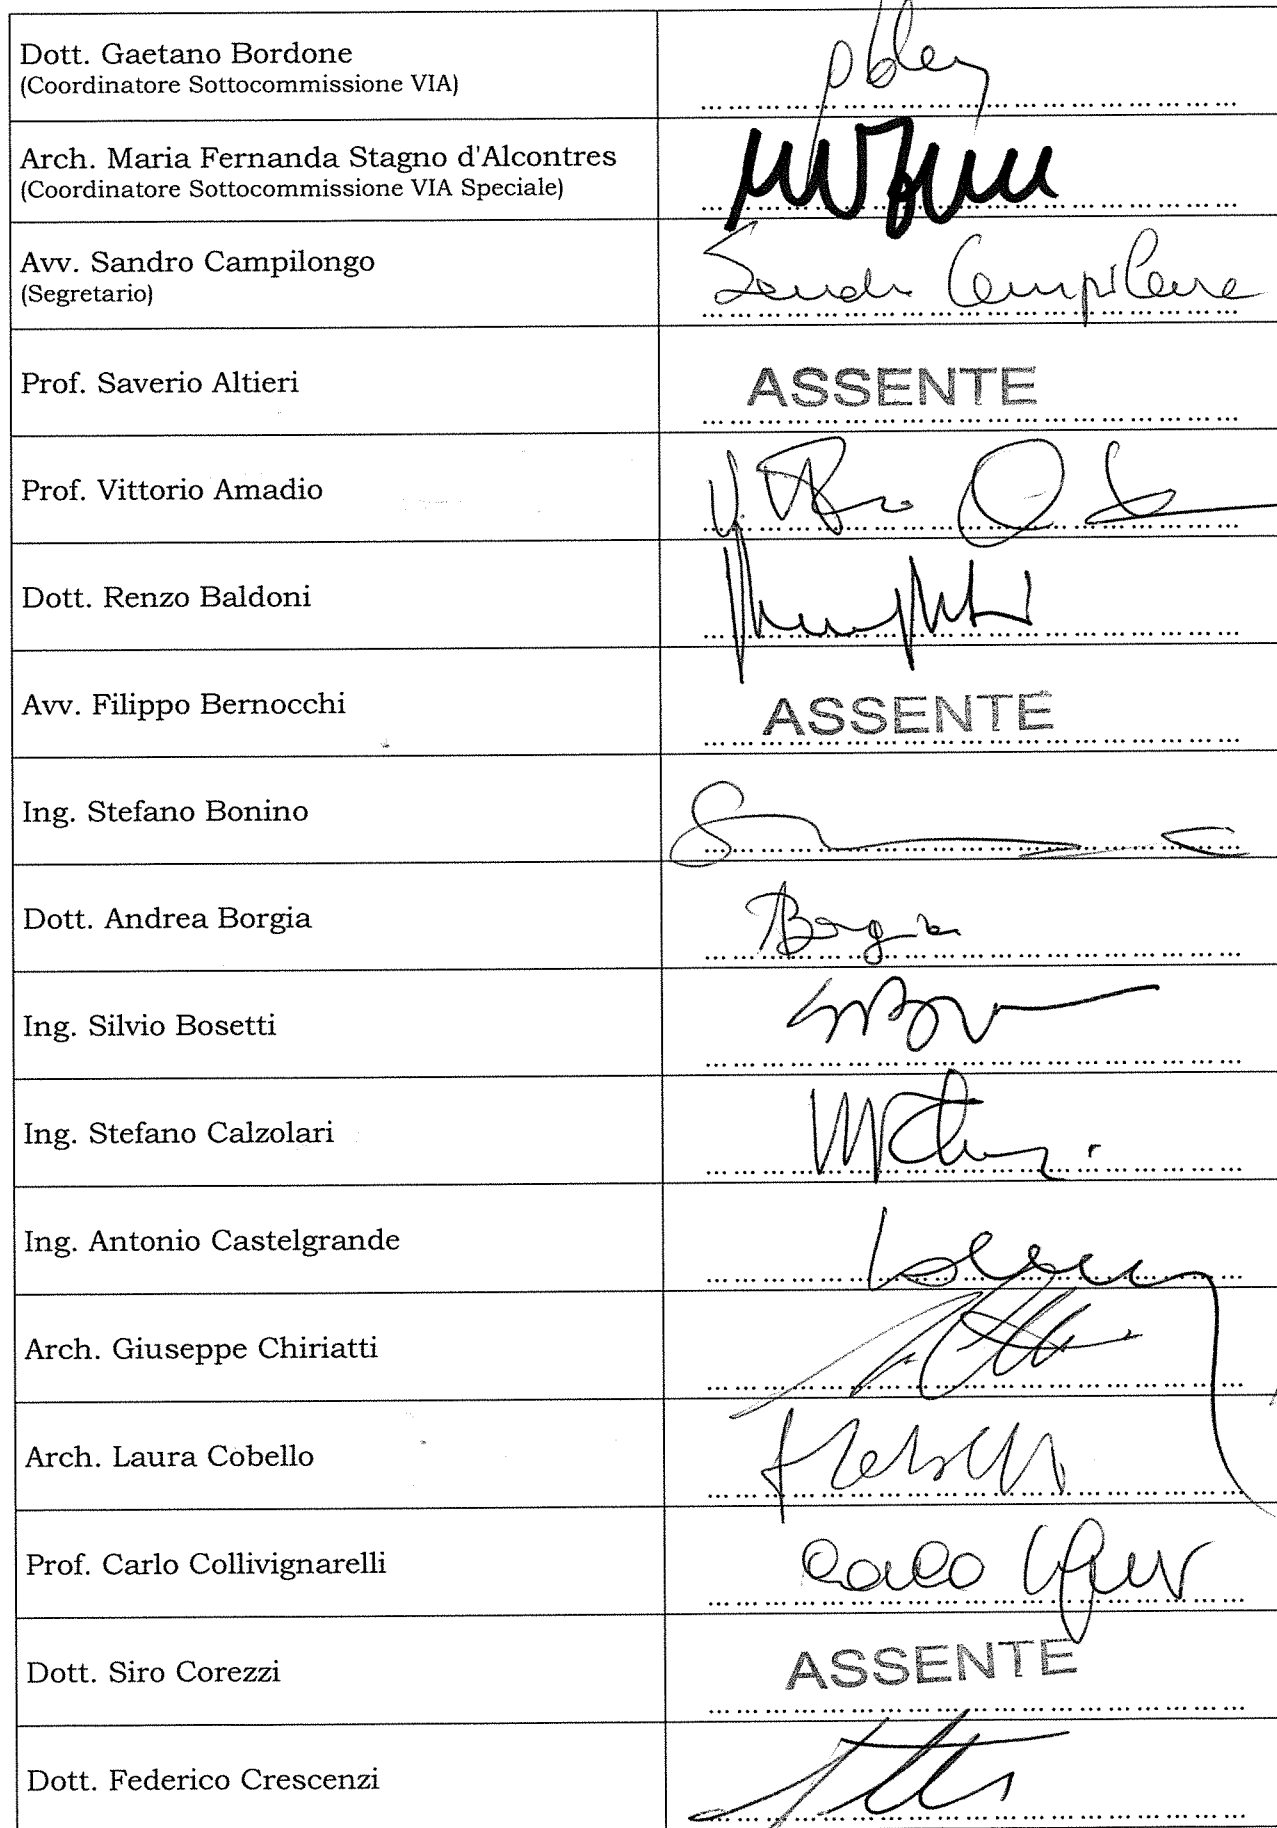 Dott. Gaetano Bordone
(Coordinatore Sottocommissione VIA)
Arch. Maria Fernanda Stagno d'Alcontres
(Coordinatore Sottocommissione VIA Speciale)
Avv. Sandro Campilongo
(Segretario)
Prof. Saverio Altieri
ASSENTE
Prof. Vittorio Amadio
Dott. Renzo Baldoni
Avv. Filippo Bernocchi
ASSENTE
Ing. Stefano Bonino
Dott. Andrea Borgia
Borgia
Ing. Silvio Bosetti
Ing. Stefano Calzolari
Ing. Antonio Castelgrande
Arch. Giuseppe Chiriatti
Arch. Laura Cobello
Prof. Carlo Collivignarelli
Carlo
Dott. Siro Corezzi
ASSENTE
Dott. Federico Crescenzi